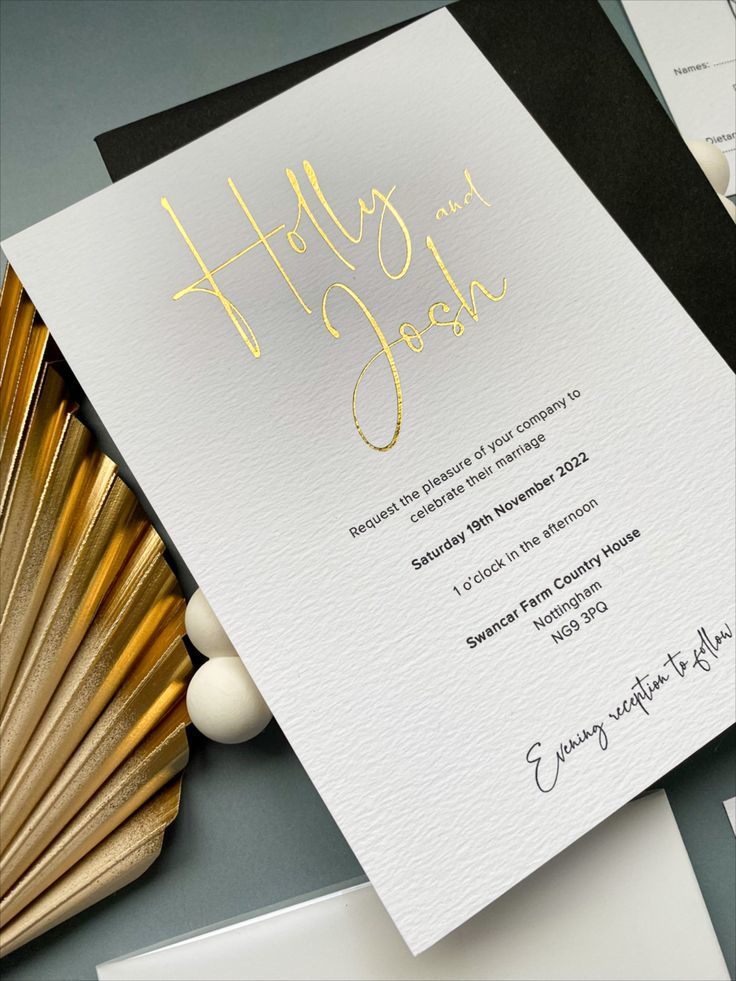 Holly and
Josh
Request the pleasure of your company to
celebrate their marriage
Saturday 19th November 2022
1 o'clock in the afternoon
Swancar Farm Country House
Nottingham
NG9 3PQ
Evening reception to follow
Names: